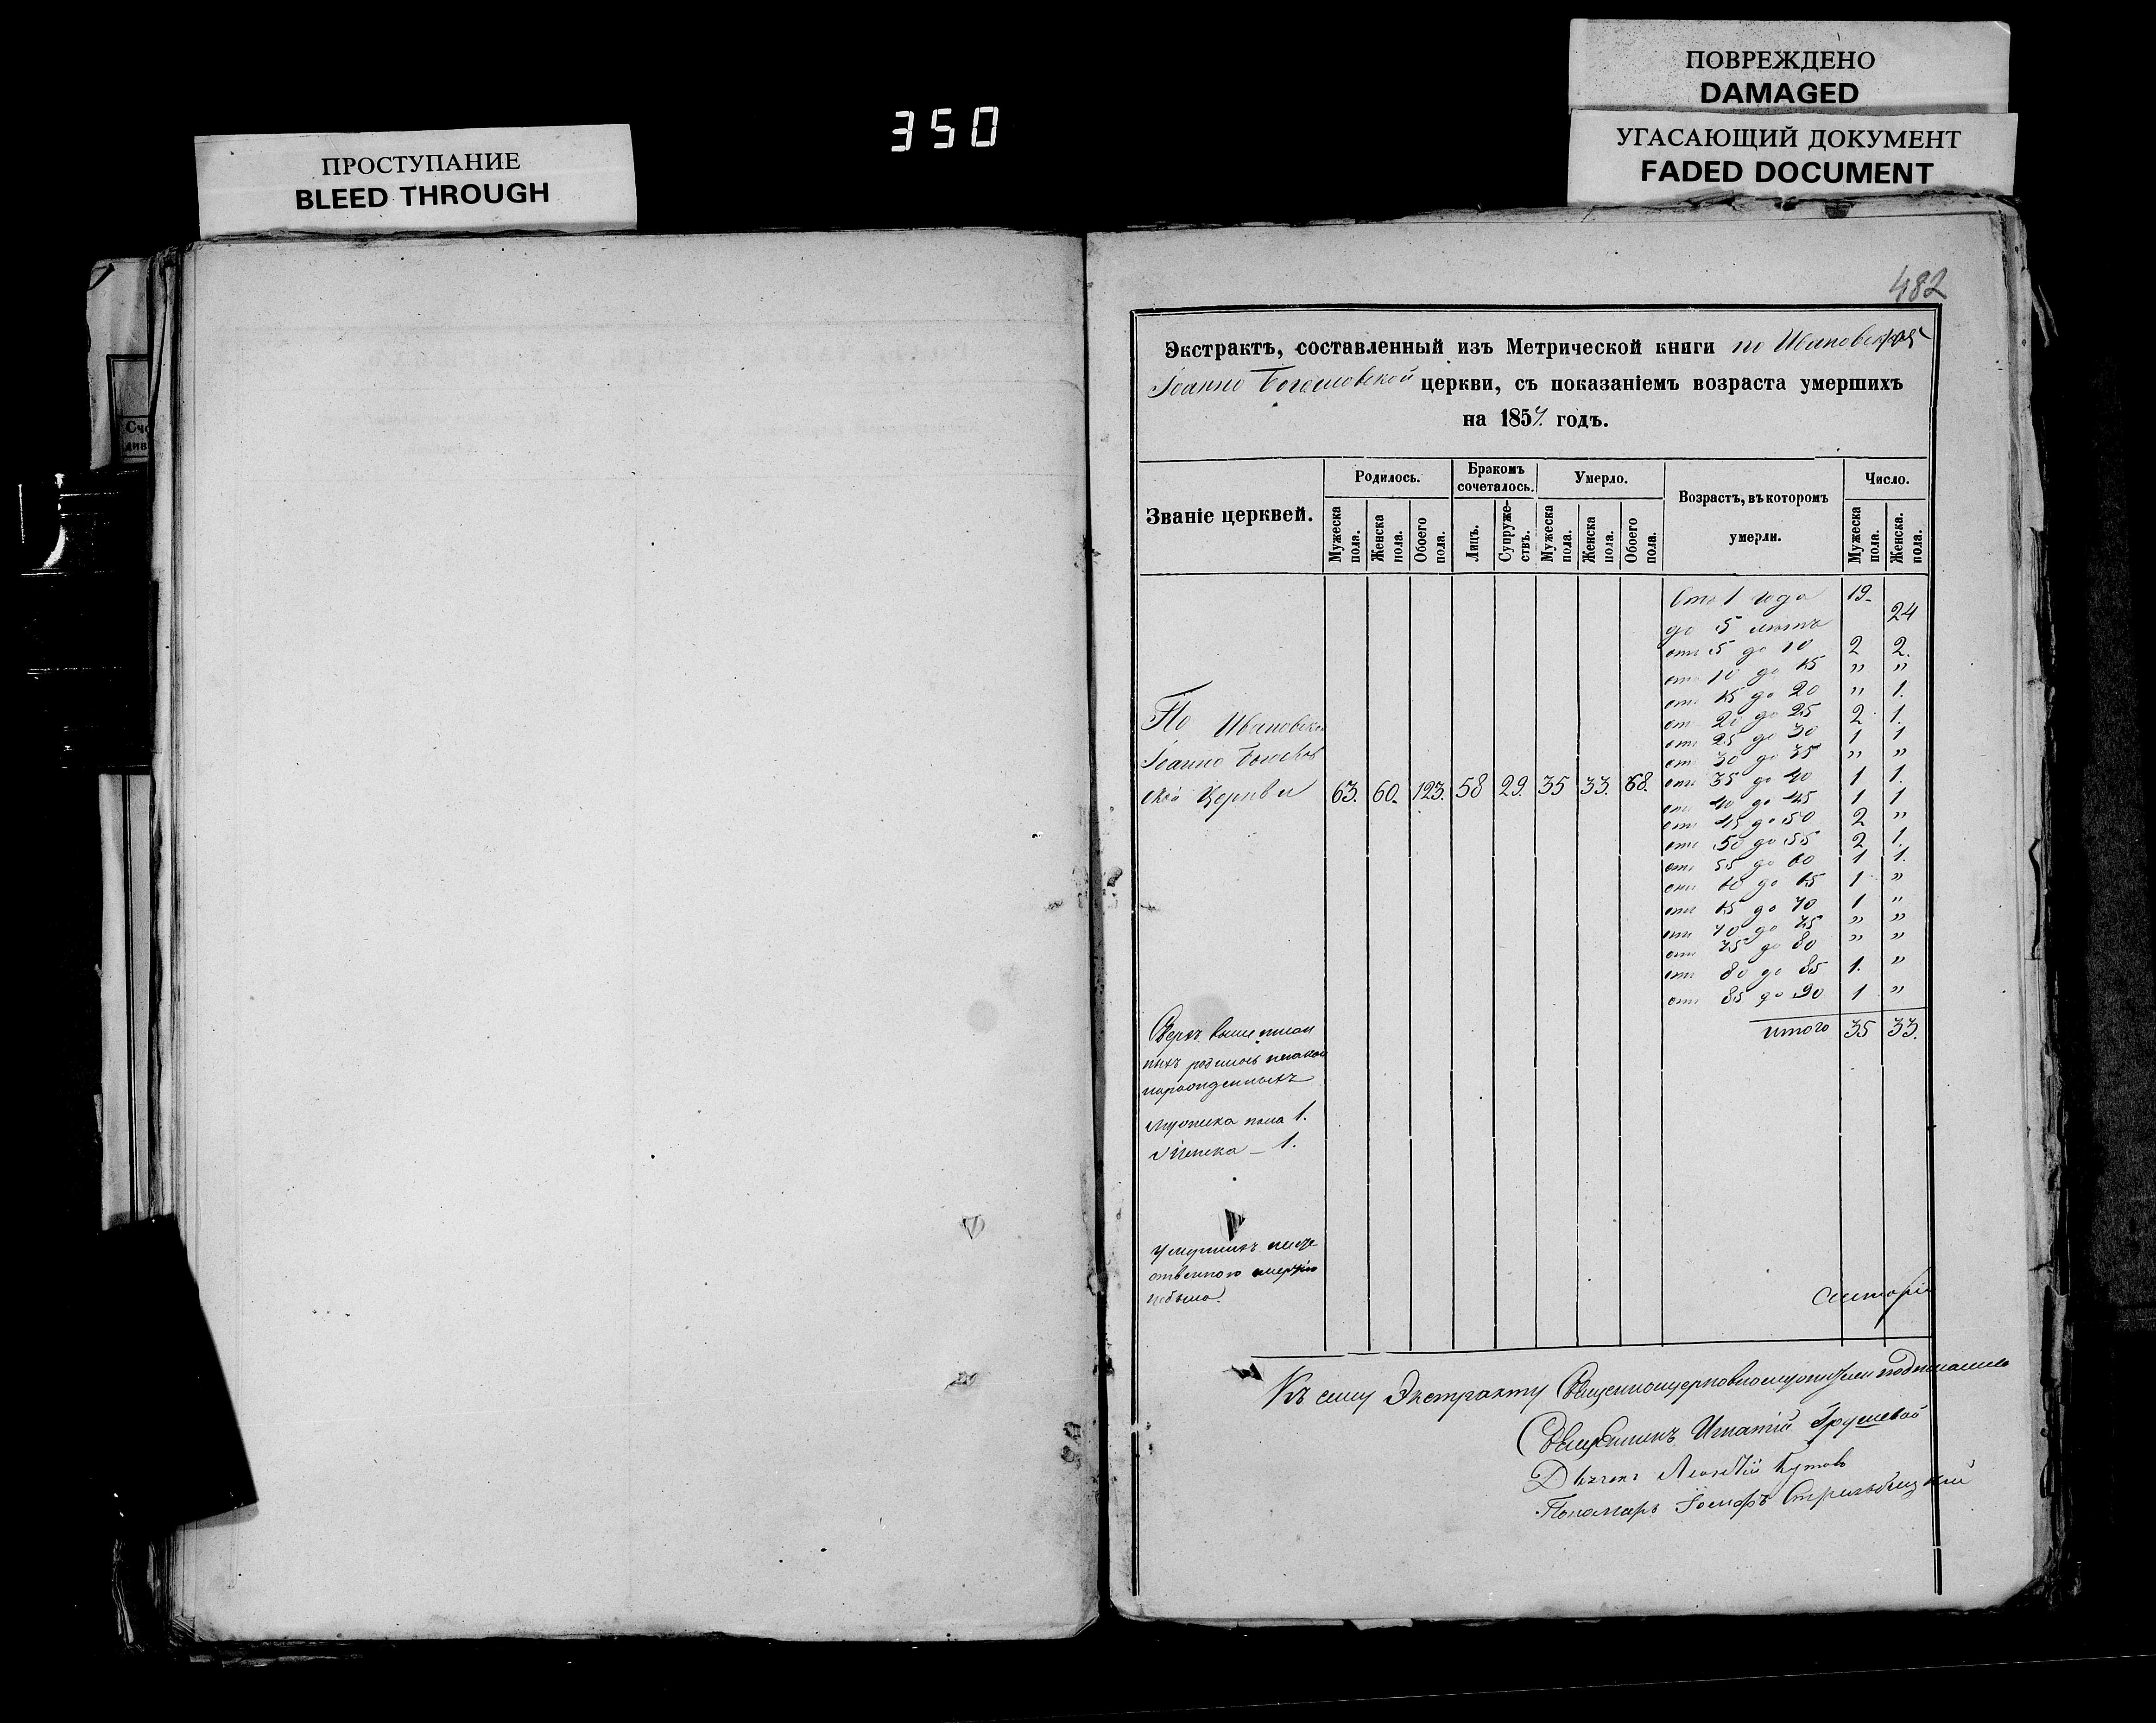 ПОВРЕЖДЕНО
DAMAGED
350
ПРОСТУПАНИЕ
BLEED THROUGH
УГАСАЮЩИЙ ДОКУМЕНТ
FADED DOCUMENT
482
Экстрактъ, составленный изъ Метрической книги по Ивановской
Іоанно Богословской церкви, съ показаніемъ возраста умершихъ
на 1857. годъ.
Званіе церквей.
Родилось.
Бракомъ сочеталось.
Умерло.
Возрастъ, въ которомъ умерли.
Число.
Мужеска пола.
Женска пола.
Обоего пола.
Лицъ.
Супружествъ.
Мужеска пола.
Женска пола.
Обоего пола.
Мужеска пола.
Женска. пола.
Отъ 1 года 19
до 5 летъ 24
отъ 5 до 10 2 2.
отъ 10 до 15 " "
отъ 15 до 20 " 1.
отъ 20 до 25 2 1.
отъ 25 до 30 1 1
отъ 30 до 35 " "
отъ 35 до 40 1 1.
отъ 40 до 45 1 1
отъ 45 до 50 2 "
отъ 50 до 55 2 1.
отъ 55 до 60 1 1.
отъ 60 до 65 1 "
отъ 65 до 70 1 "
отъ 70 до 75 " "
отъ 75 до 80 " "
отъ 80 до 85 1. "
отъ 85 до 90 1 "
итого 35 33.
По Ивановской
Іоанно Богослов
ской Церкви 63. 60. 123. 58 29. 35 33. 68.
Сверхъ вышеписан
ныхъ родилось незакон
норожденныхъ
Мужеска пола 1.
Женска – 1.
Умершихъ неесте
ственною смертію
небыло.
Къ сему Экстракту Священноцерковнослужители подписались
Священникъ Игнатій Грушевой
Дьячекъ Леонтій
Пономарь Іосифъ Стрильбицкій